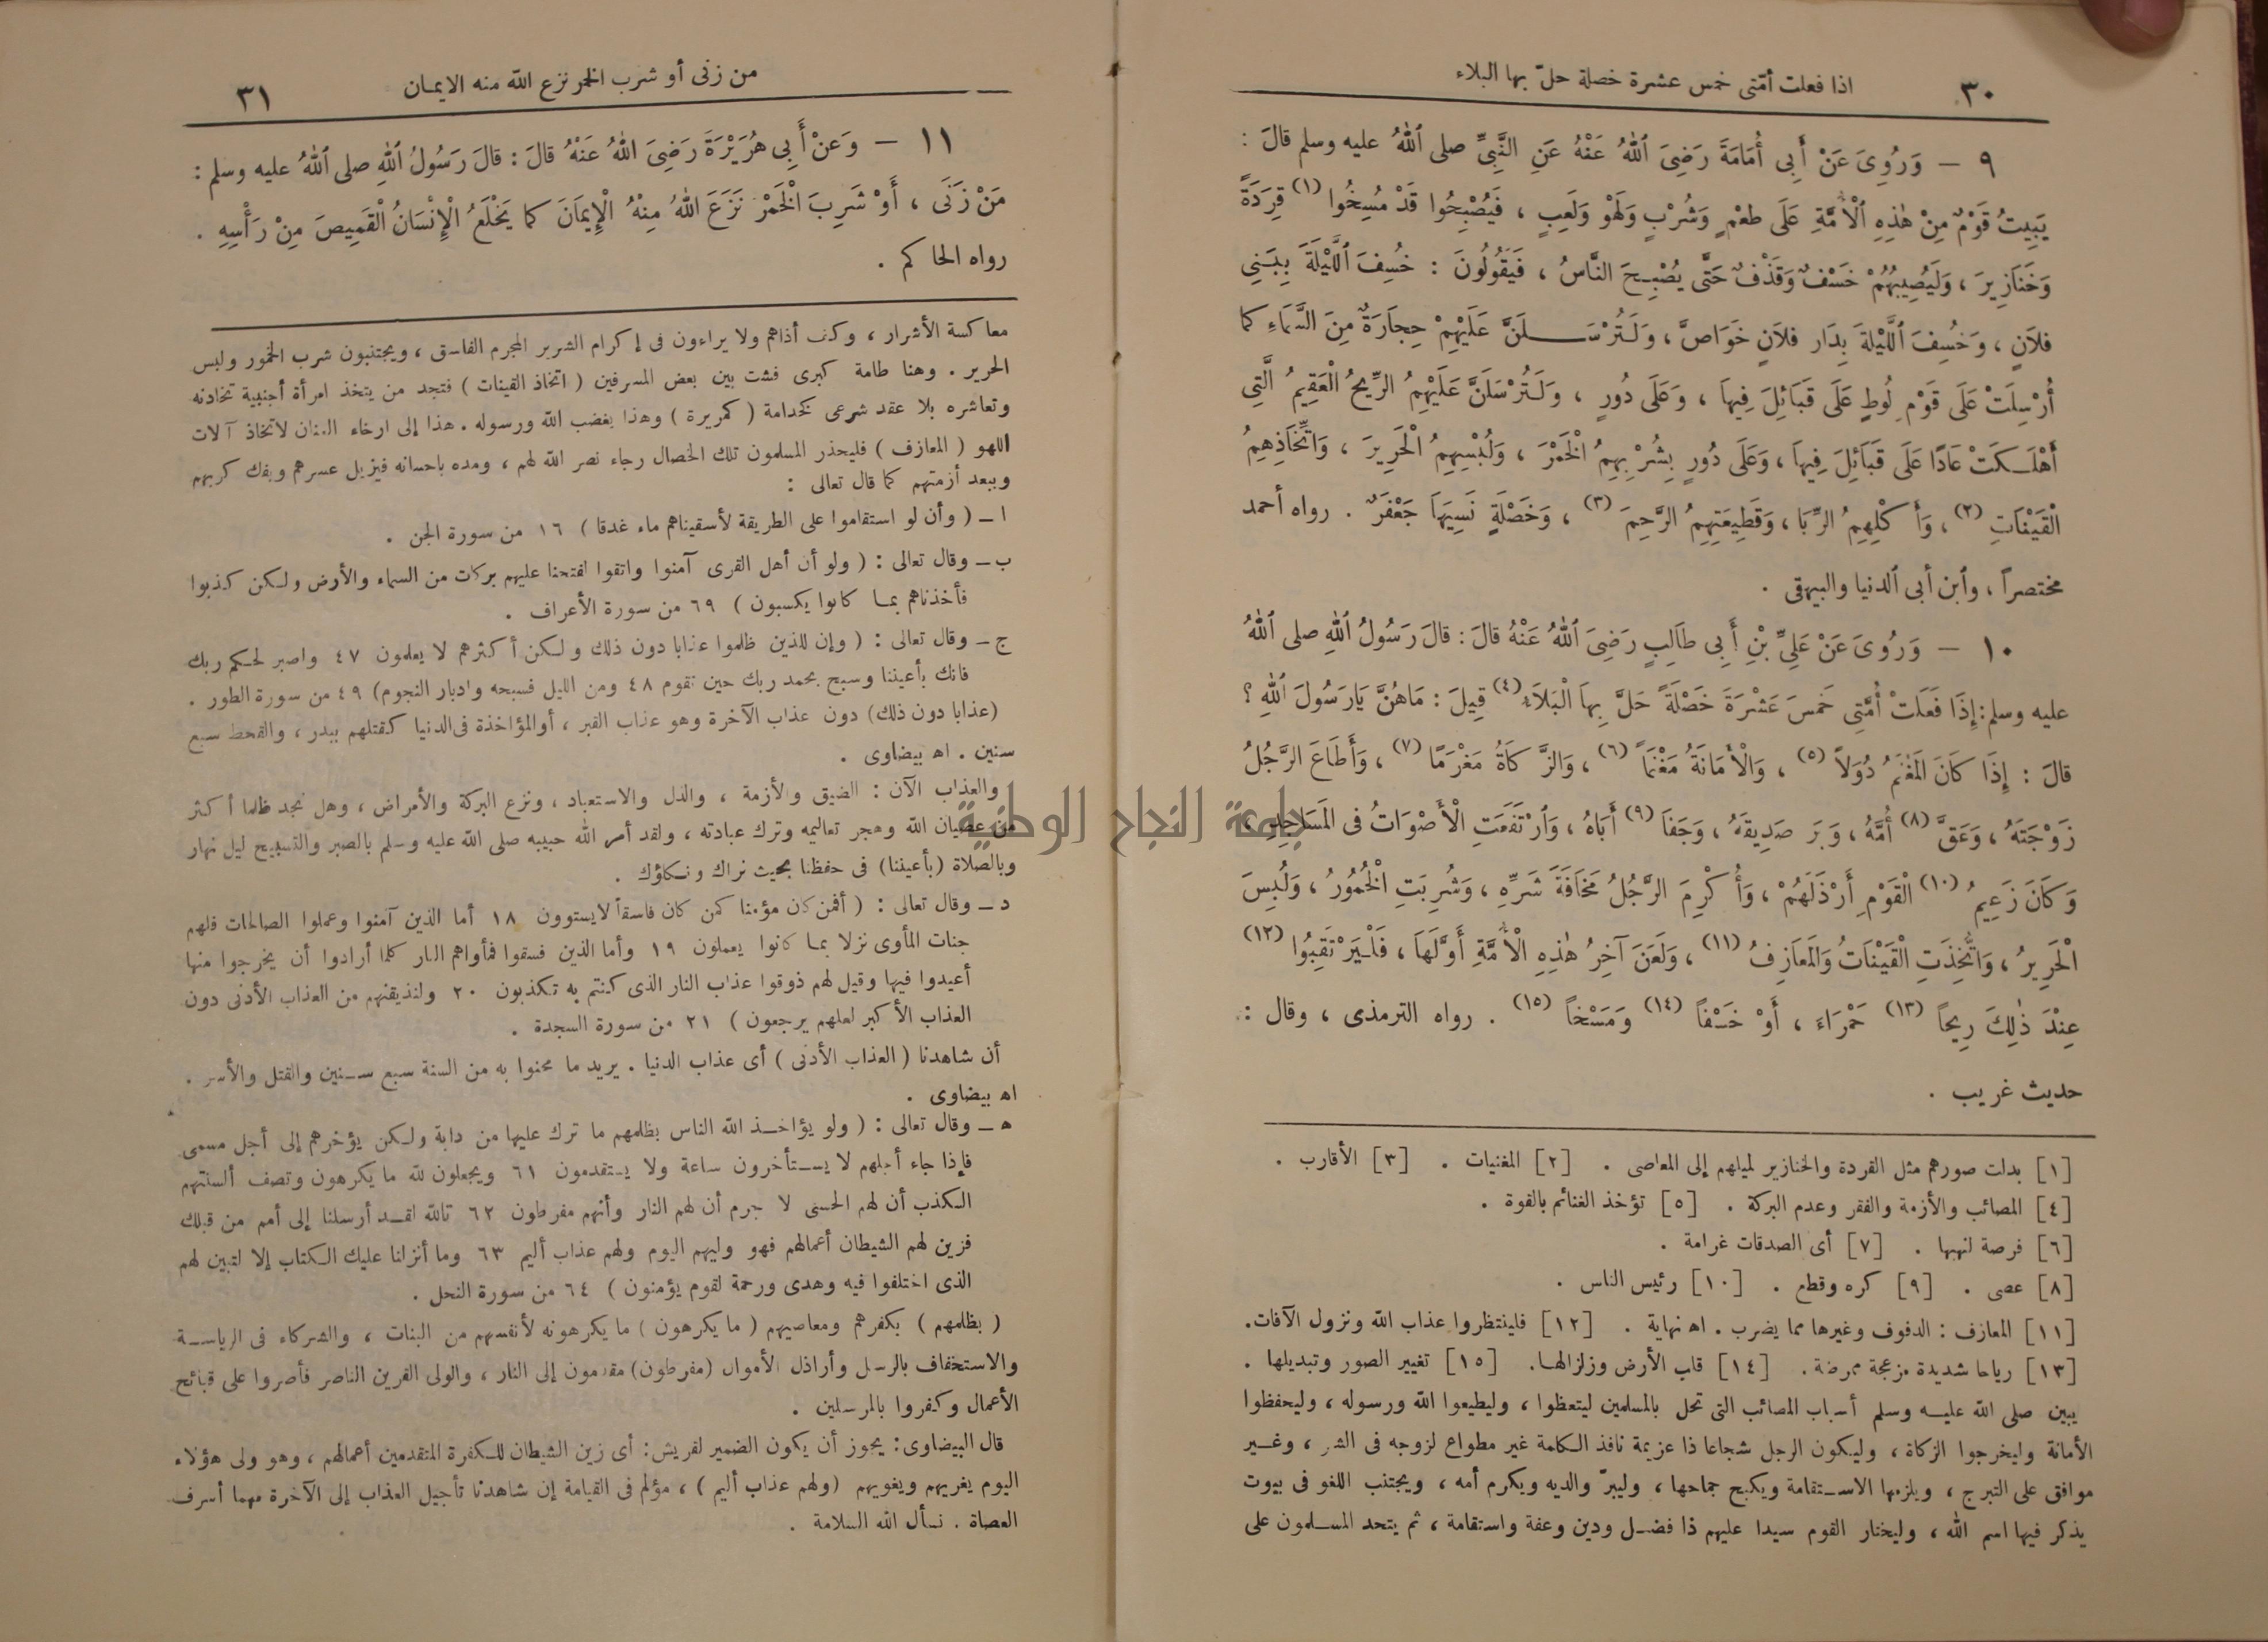 ٣٠ اذا فعلت أمّتى خمس عشرة خصلة حلّ بها البلاء
٩ – وَرُوِىَ عَنْ أَبِى أُمَامَةَ رَضِىَ ٱللهُ عَنْهُ عَنِ النَّبِىِّ صلى ٱللهُ عليه وسلم قالَ :
يَبِيتُ قَوْمٌ مِنْ هٰذِهِ ٱلْأُمَّةِ عَلَى طعْمٍ وَشُرْبٍ وَلَهْوٍ وَلَعِبٍ ، فَيُصْبِحُوا قَدْ مُسِخُوا (١) قِرَدَةً
وَخَنَازِيرَ ، وَلَيُصِيبُهُمْ خَسْفٌ وَقَذْفٌ حَتَّى يُصْبِحَ النَّاسُ ، فَيَقُولُونَ : خُسِفَ ٱللَّيْلَةَ بِبَنِى
فلاَنٍ ، وَخُسِفَ ٱللَّيْلةَ بِدَارِ فلاَنٍ خَوَاصَّ ، وَلَتُرْسَلَنَّ عَلَيْهِمْ حِجَارَةٌ مِنَ السَّمَاءِ كما
أُرْسِلَتْ عَلَى قَوْمِ لُوطٍ عَلَى قَبَائِلَ فِيهَا ، وَعَلَى دُورٍ ، وَلَتُرْسَلَنَّ عَلَيْهِمُ الرِّيحُ الْعَقِيمُ الَّتِى
أَهْلَكَتْ عَادًا عَلَى قَبَائِلَ فِيهَا ، وَعَلَى دُورٍ بِشُرْبِهِمُ الْخَمْرَ ، وَلُبْسِهِمُ الْحَرِيرَ ، وَاتِّخَاذِهِمُ
الْقَيْنَاتِ (٢) ، وَأَكْلِهِمُ الرِّبَا ، وَقَطِيعَتِهِمُ الرَّحِمَ (٣) ، وَخَصْلَةٍ نَسِيَهَا جَعْفَرٌ . رواه أحمد
مختصراً ، وٱبن أبى ٱلدنيا والبيهقى .
١٠ – وَرُوِىَ عَنْ عَلِىِّ بْنِ أَبِى طَالِبٍ رَضِىَ ٱللهُ عَنْهُ قالَ : قالَ رَسُولُ ٱللهِ صلى ٱللهُ
عليه وسلم : إِذَا فَعَلَتْ أُمَّتِى خَمسَ عَشْرَةَ خَصْلَةً حَلَّ بِهَا الْبَلاَءُ (٤) قِيلَ : مَاهُنَّ يَارَسُولَ ٱللهِ ؟
قالَ : إِذَا كَانَ المَغْنَمُ دُوَلاً (٥) ، وَالْأَمَانَةُ مَغْنَماً (٦) ، وَالزَّكَاةُ مَغْرَمًا (٧) ، وَأَطَاعَ الرَّجُلُ
زَوْجَتَهُ ، وَعَقَّ (٨) أُمَّهُ ، وَبَرَ صَدِيقَهُ ، وَجَفَا (٩) أَبَاهُ ، وَٱرْتَفَعَتِ الْأَصْوَاتُ فى المَسَاجِدِ ،
وَكَانَ زَعِيمُ (١٠) الْقَوْمِ أَرْذَلَهُمْ ، وَأُكْرِمَ الرَّجُلُ مَخَافَةَ شَرِّهِ ، وَشُرِبَتِ الْخُمُورُ ، وَلُبِسَ
الْحَرِيرُ ، وَاتُّخِذَتِ الْقَيْنَاتُ وَالمَعَازِفُ (١١) ، وَلَعَنَ آخِرُ هٰذِهِ الْأُمَّةِ أَوَّلَهَا ، فَلْيَرْتَقِبُوا (١٢)
عِنْدَ ذٰلِكَ رِيحاً (١٣) حَمْرَاءَ ، أَوْ خَسْفاً (١٤) وَمَسْخاً (١٥) . رواه الترمذى ، وقال :
حديث غريب .
[١] بدلت صورهم مثل القردة والخنازير لميلهم إلى المعاصى . [٢] المغنيات . [٣] الأقارب .
[٤] المصائب والأزمة والفقر وعدم البركة . [٥] تؤخذ الغنائم بالقوة .
[٦] فرصة لنهبها . [٧] أى الصدقات غرامة .
[٨] عصى . [٩] كره وقطع . [١٠] رئيس الناس .
[١١] المعازف : الدفوف وغيرها مما يضرب . اه نهاية . [١٢] فلينتظروا عذاب الله ونزول الآفات.
[١٣] رياحا شديدة مزعجة ممرضة . [١٤] قلب الأرض وزلزالها. [١٥] تغيير الصور وتبديلها .
يبين صلى الله عليه وسلم أسباب المصائب التى تحل بالمسلمين ليتعظوا ، وليطيعوا الله ورسوله ، وليحفظوا
الأمانة وليخرجوا الزكاة ، وليكون الرجل شجاعا ذا عزيمة نافذ الكلمة غير مطواع لزوجه فى الشر ، وغير
موافق على التبرج ، ويلزمها الاستقامة ويكبح جماحها ، وليبرّ والديه ويكرم أمه ، ويجتنب اللغو فى بيوت
يذكر فيها اسم الله ، وليختار القوم سيدا عليهم ذا فضل ودين وعفة واستقامة ، ثم يتحد المسلمون على
من زنى أو شرب الخمر نزع الله منه الايمان ٣١
١١ – وَعَنْ أَبِى هُرَيْرَةَ رَضِىَ اللهُ عَنْهُ قالَ : قالَ رَسُولُ ٱللهِ صلى ٱللهُ عليه وسلم :
مَنْ زَنَى ، أَوْ شَرِبَ الْخَمْرَ نَزَعَ اللهُ مِنْهُ الْإِيمَانَ كما يَخْلَعُ الْإِنْسَانُ الْقَمِيصَ مِنْ رَأْسِهِ .
رواه الحاكم .
معاكسة الأشرار ، وكف أذاهم ولا يراءون فى إكرام الشرير المجرم الفاسق ، ويجتنبون شرب الخمور ولبس
الحرير . وهنا طامة كبرى فشت بين بعض المسرفين ( اتخاذ القينات ) فتجد من يتخذ امرأة أجنبية تخادنه
وتعاشره بلا عقد شرعى كخدامة ( كمريرة ) وهذا يغضب الله ورسوله . هذا إلى ارخاء العنان لاتخاذ آلات
اللهو ( المعازف ) فليحذر المسلمون تلك الخصال رجاء نصر الله لهم ، ومده باحسانه فيزيل عسرهم ويفك كربهم
ويبعد أزمتهم كما قال تعالى :
ا – ( وأن لو استقاموا على الطريقة لأسقيناهم ماء غدقا ) ١٦ من سورة الجن .
ب – وقال تعالى : ( ولو أن أهل القرى آمنوا واتقوا لفتحنا عليهم بركات من السماء والأرض ولكن كذبوا
فأخذناهم بما كانوا يكسبون ) ٦٩ من سورة الأعراف .
ج – وقال تعالى : ( وإن للذين ظلموا عذابا دون ذلك ولكن أكثرهم لا يعلمون ٤٧ واصبر لحكم ربك
فانك بأعيننا وسبح بحمد ربك حين تقوم ٤٨ ومن الليل فسبحه وادبار النجوم) ٤٩ من سورة الطور .
(عذابا دون ذلك) دون عذاب الآخرة وهو عذاب القبر ، أوالمؤاخذة فى الدنيا كقتلهم ببدر ، والقحط سبع
سنين . اه بيضاوى .
والعذاب الآن : الضيق والأزمة ، والذل والاستعباد ، ونزع البركة والأمراض ، وهل نجد ظلما أكثر
من عصيان الله وهجر تعاليمه وترك عبادته ، ولقد أمر الله حبيبه صلى الله عليه وسلم بالصبر والتسبيح ليل نهار
وبالصلاة (بأعيننا) فى حفظنا بحيث نراك ونكلؤك .
د – وقال تعالى : ( أفمن كان مؤمنا كمن كان فاسقاً لايستوون ١٨ أما الذين آمنوا وعملوا الصالحات فلهم
جنات المأوى نزلا بما كانوا يعملون ١٩ وأما الذين فسقوا فمأواهم النار كلما أرادوا أن يخرجوا منها
أعيدوا فيها وقيل لهم ذوقوا عذاب النار الذى كنتم به تكذبون ٢٠ ولنذيقنهم من العذاب الأدنى دون
العذاب الأكبر لعلهم يرجعون ) ٢١ من سورة السجدة .
أن شاهدنا ( العذاب الأدنى ) أى عذاب الدنيا . يريد ما محنوا به من السنة سبع سنين والقتل والأسر .
اه بيضاوى .
ه – وقال تعالى : ( ولو يؤاخذ الله الناس بظلمهم ما ترك عليها من دابة ولكن يؤخرهم إلى أجل مسمى
فإذا جاء أجلهم لا يستأخرون ساعة ولا يستقدمون ٦١ ويجعلون لله ما يكرهون وتصف ألسنتهم
الكذب أن لهم الحسنى لا جرم أن لهم النار وأنهم مفرطون ٦٢ تالله لقد أرسلنا إلى أمم من قبلك
فزين لهم الشيطان أعمالهم فهو وليهم اليوم ولهم عذاب أليم ٦٣ وما أنزلنا عليك الكتاب إلا لتبين لهم
الذى اختلفوا فيه وهدى ورحمة لقوم يؤمنون ) ٦٤ من سورة النحل .
( بظلمهم ) بكفرهم ومعاصيهم ( ما يكرهون ) ما يكرهونه لأنفسهم من البنات ، والشركاء فى الرياسة
والاستخفاف بالرسل وأراذل الأموال (مفرطون) مقدمون إلى النار ، والولى القرين الناصر فأصروا على قبائح
الأعمال وكفروا بالمرسلين .
قال البيضاوى : يجوز أن يكون الضمير لقريش : أى زين الشيطان للكفرة المتقدمين أعمالهم ، وهو ولى هؤلاء
اليوم يغريهم ويغويهم (ولهم عذاب أليم ) ، مؤلم فى القيامة إن شاهدنا تأجيل العذاب إلى الآخرة مهما أسرف
العصاة . نسأل الله السلامة .
جامعة النجاح الوطنية